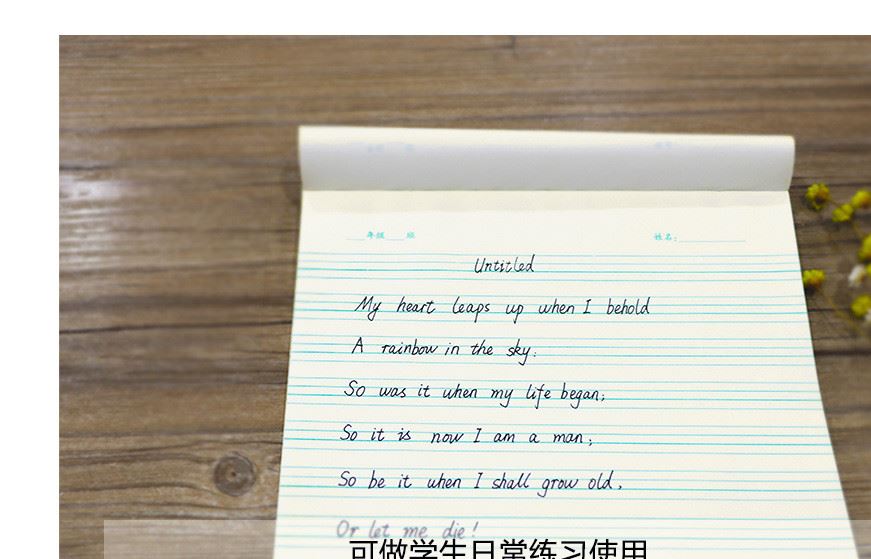 ___年级___班 姓名:___________
Untitled
My heart leaps up when I behold
A rainbow in the sky:
So was it when my life began;
So it is now I am a man;
So be it when I shall grow old,
Or let me die!
可做学生日常练习使用